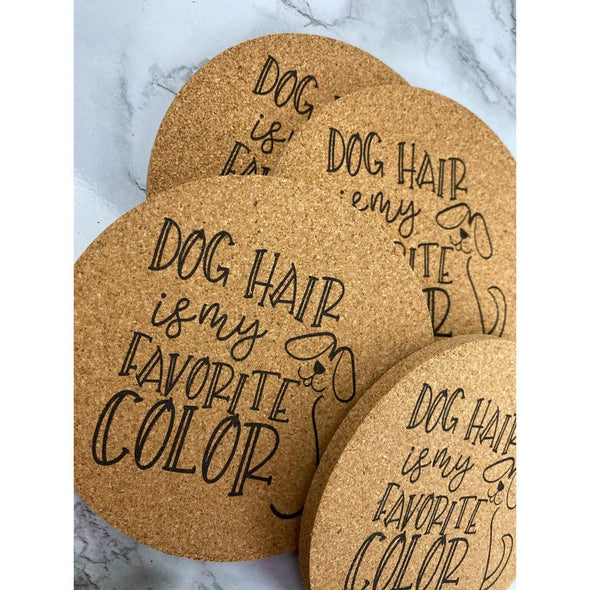 DOG
is
FA
DOG HAIR
is my
ITE
R
DOG HAIR
is my
FAVORITE
COLOR
DOG HAIR
is my
FAVORITE
COLOR